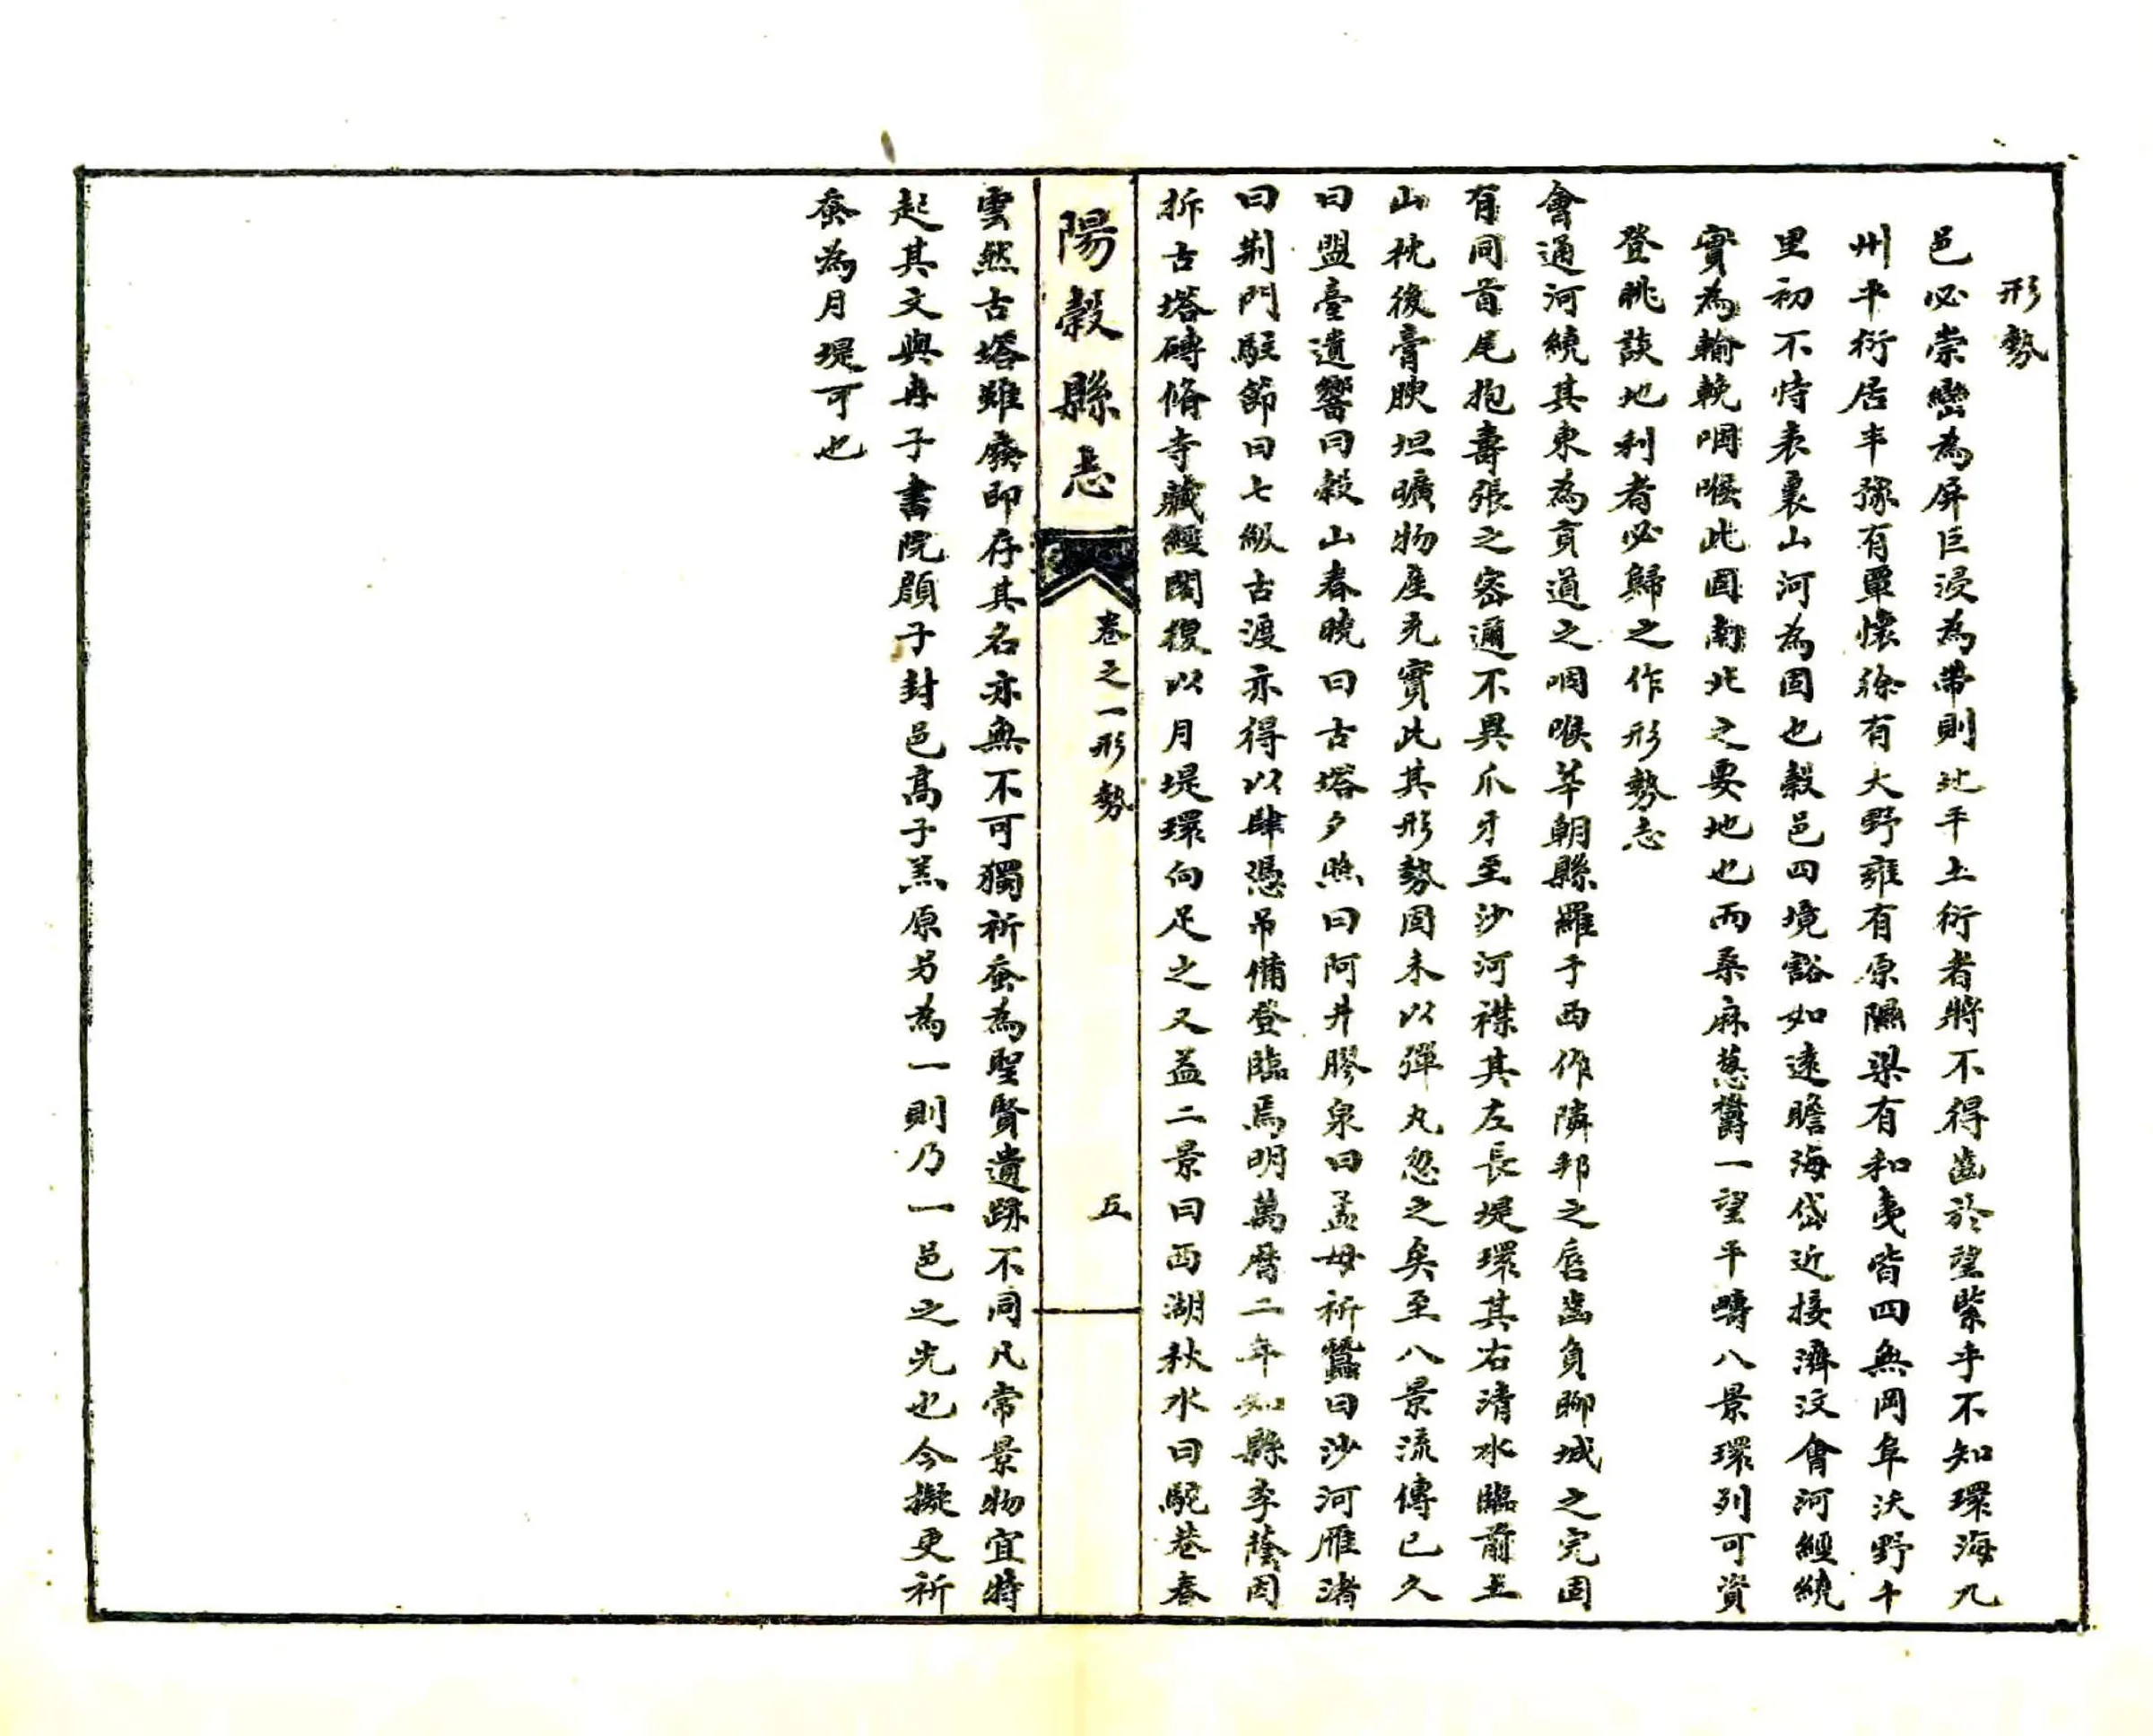 形勢
邑必崇巒為屏巨浸為帶則地平土衍者將不得齒於望緊乎不知環海九
州平衍居半豫有覃懷徐有大野雍有原隰梁有和夷皆四無岡阜沃野千
里初不恃表裏山河為固也穀邑四境豁如遠瞻海岱近接濟汶會河經繞
實為輸輓咽喉此固南北之要地也而桑麻葱欝一望平疇八景環列可資
登眺談地利者必歸之作形勢志
會通河繞其東為貢道之咽喉莘朝縣羅于西作隣邦之唇齒負聊城之完固
有同首尾抱壽張之密邇不異爪牙至沙河襟其左長堤環其右清水臨前土
山枕後膏腴坦曠物產充實此其形勢固未以彈丸忽之矣至八景流傳已久
曰盟臺遺響曰穀山春曉曰古塔夕照曰阿井膠泉曰孟母祈蠶曰沙河雁渚
曰荆門駐節曰七級古渡亦得以肆憑吊備登臨焉明萬曆二年知縣李蔭因
拆古塔磚脩寺藏經閣復以月堤環向足之又益二景曰西湖秋水曰駝巷春
陽穀縣志
卷之一形勢
五
雲然古塔雖廢即存其名亦無不可獨祈蚕為聖賢遺跡不同凡常景物宜特
起其文與冉子書院顔子封邑高子羔原另為一則乃一邑之光也今擬更祈
蚕為月堤可也